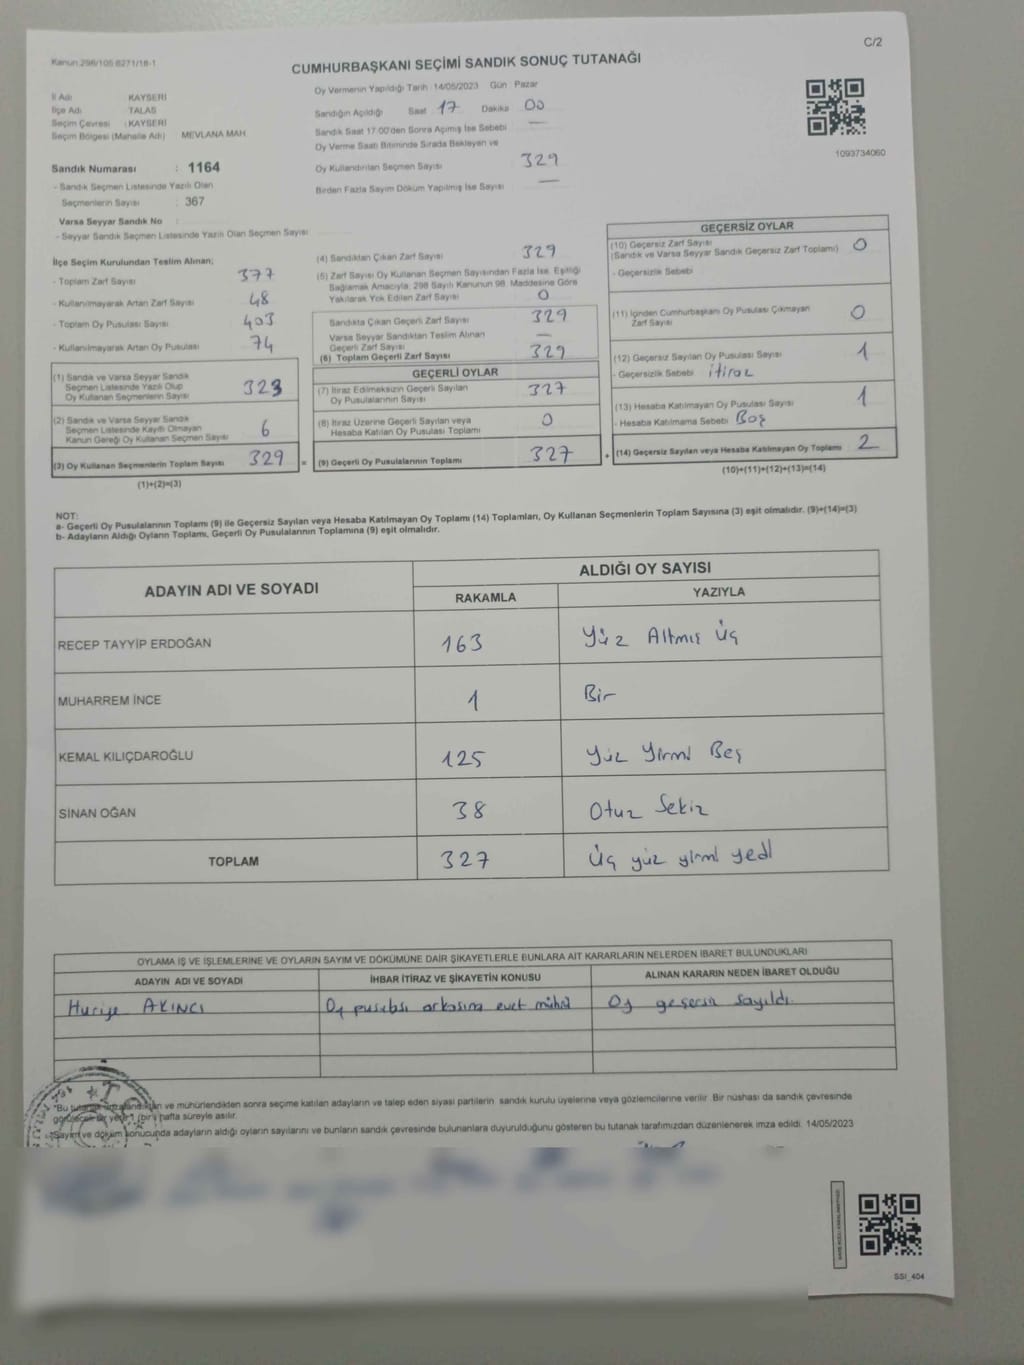 Kanun:298/105 6271/18-1
C/2
CUMHURBAŞKANI SEÇİMİ SANDIK SONUÇ TUTANAĞI
İl Adı : KAYSERİ
İlçe Adı : TALAS
Seçim Çevresi : KAYSERİ
Seçim Bölgesi (Mahalle Adı) : MEVLANA MAH.
Sandık Numarası : 1164
- Sandık Seçmen Listesinde Yazılı Olan
Seçmenlerin Sayısı : 367
Varsa Seyyar Sandık No :
- Seyyar Sandık Seçmen Listesinde Yazılı Olan Seçmen Sayısı
Oy Vermenin Yapıldığı Tarih :14/05/2023 Gün Pazar
Sandığın Açıldığı Saat 17 Dakika 00
Sandık Saat 17.00'den Sonra Açımış İse Sebebi —
Oy Verme Saati Bitiminde Sırada Bekleyen ve
Oy Kullandırılan Seçmen Sayısı 329
Birden Fazla Sayım Döküm Yapılmış İse Sayısı —
1093734060
İlçe Seçim Kurulundan Teslim Alınan;
- Toplam Zarf Sayısı 377
- Kullanılmayarak Artan Zarf Sayısı 48
- Toplam Oy Pusulası Sayısı 403
- Kullanılmayarak Artan Oy Pusulası 74
(1) Sandık ve Varsa Seyyar Sandık
Seçmen Listesinde Yazılı Olup
Oy Kullanan Seçmenlerin Sayısı 323
(2) Sandık ve Varsa Seyyar Sandık
Seçmen Listesinde Kayıtlı Olmayan
Kanun Gereği Oy Kullanan Seçmen Sayısı 6
(3) Oy Kullanan Seçmenlerin Toplam Sayısı 329 =
(1)+(2)=(3)
(4) Sandıktan Çıkan Zarf Sayısı 329
(5) Zarf Sayısı Oy Kullanan Seçmen Sayısından Fazla İse, Eşitliği
Sağlamak Amacıyla, 298 Sayılı Kanunun 98. Maddesine Göre
Yakılarak Yok Edilen Zarf Sayısı 0
Sandıkta Çıkan Geçerli Zarf Sayısı 329
Varsa Seyyar Sandıktan Teslim Alınan
Geçerli Zarf Sayısı —
(6) Toplam Geçerli Zarf Sayısı 329
GEÇERLİ OYLAR
(7) İtiraz Edilmeksizin Geçerli Sayılan
Oy Pusulalarının Sayısı 327
(8) İtiraz Üzerine Geçerli Sayılan veya
Hesaba Katılan Oy Pusulası Toplamı 0
(9) Geçerli Oy Pusulalarının Toplamı 327 +
GEÇERSİZ OYLAR
(10) Geçersiz Zarf Sayısı
(Sandık ve Varsa Seyyar Sandık Geçersiz Zarf Toplamı) 0
- Geçersizlik Sebebi
(11) İçinden Cumhurbaşkanı Oy Pusulası Çıkmayan
Zarf Sayısı 0
(12) Geçersiz Sayılan Oy Pusulası Sayısı 1
- Geçersizlik Sebebi itiraz
(13) Hesaba Katılmayan Oy Pusulası Sayısı 1
- Hesaba Katılmama Sebebi Boş
(14) Geçersiz Sayılan veya Hesaba Katılmayan Oy Toplamı 2
(10)+(11)+(12)+(13)=(14)
NOT:
a- Geçerli Oy Pusulalarının Toplamı (9) ile Geçersiz Sayılan veya Hesaba Katılmayan Oy Toplamı (14) Toplamları, Oy Kullanan Seçmenlerin Toplam Sayısına (3) eşit olmalıdır. (9)+(14)=(3)
b- Adayların Aldığı Oyların Toplamı, Geçerli Oy Pusulalarının Toplamına (9) eşit olmalıdır.
ADAYIN ADI VE SOYADI
ALDIĞI OY SAYISI
RAKAMLA YAZIYLA
RECEP TAYYİP ERDOĞAN 163 Yüz Altmış Üç
MUHARREM İNCE 1 Bir
KEMAL KILIÇDAROĞLU 125 Yüz Yirmi Beş
SİNAN OĞAN 38 Otuz Sekiz
TOPLAM 327 Üç yüz yirmi yedi
OYLAMA İŞ VE İŞLEMLERİNE VE OYLARIN SAYIM VE DÖKÜMÜNE DAİR ŞİKAYETLERLE BUNLARA AİT KARARLARIN NELERDEN İBARET BULUNDUKLARI
ADAYIN ADI VE SOYADI İHBAR İTİRAZ VE ŞİKAYETİN KONUSU ALINAN KARARIN NEDEN İBARET OLDUĞU
Huriye AKINCI Oy pusulası arkasına evet mührü Oy geçersiz sayıldı.
"Bu tutanak imzalandıktan ve mühürlendikten sonra seçime katılan adayların ve talep eden siyasi partilerin sandık kurulu üyelerine veya gözlemcilerine verilir. Bir nüshası da sandık çevresinde
görülecek bir yere 1 (bir) hafta süreyle asılır.
- Sayım ve döküm sonucunda adayların aldığı oyların sayılarını ve bunların sandık çevresinde bulunanlara duyurulduğunu gösteren bu tutanak tarafımızdan düzenlenerek imza edildi. 14/05/2023
SSI_404